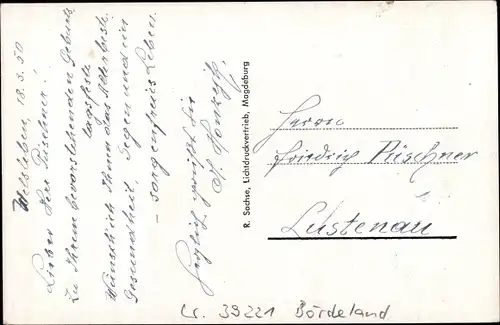 Welsleben, 18.3.50
Lieber Herr Püschner!
Zu Ihrem bevorstehenden Geburts
tagsfeste
Wünsch ich Ihnen das Allerbeste.
Gesundheit, Segen und ein
- sorgenfreies Leben.
Herzlich grüßt Sie
R. Sachse, Lichtdruckvertrieb, Magdeburg
Herrn
Friedrich Püschner
Lüstenau
Lr. 39221 Bördeland